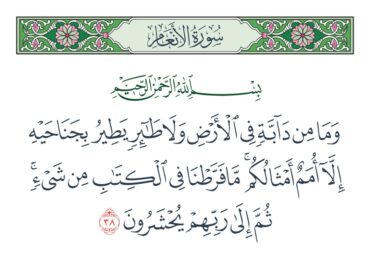 سُورَةُ الأَنْعَامِ
بِسْمِ اللَّهِ الرَّحْمَٰنِ الرَّحِيمِ
وَمَا مِن دَآبَّةٍ فِى ٱلْأَرْضِ وَلَا طَٰٓئِرٍ يَطِيرُ بِجَنَاحَيْهِ
إِلَّآ أُمَمٌ أَمْثَالُكُم ۚ مَّا فَرَّطْنَا فِى ٱلْكِتَٰبِ مِن شَىْءٍ ۚ
ثُمَّ إِلَىٰ رَبِّهِمْ يُحْشَرُونَ ٣٨